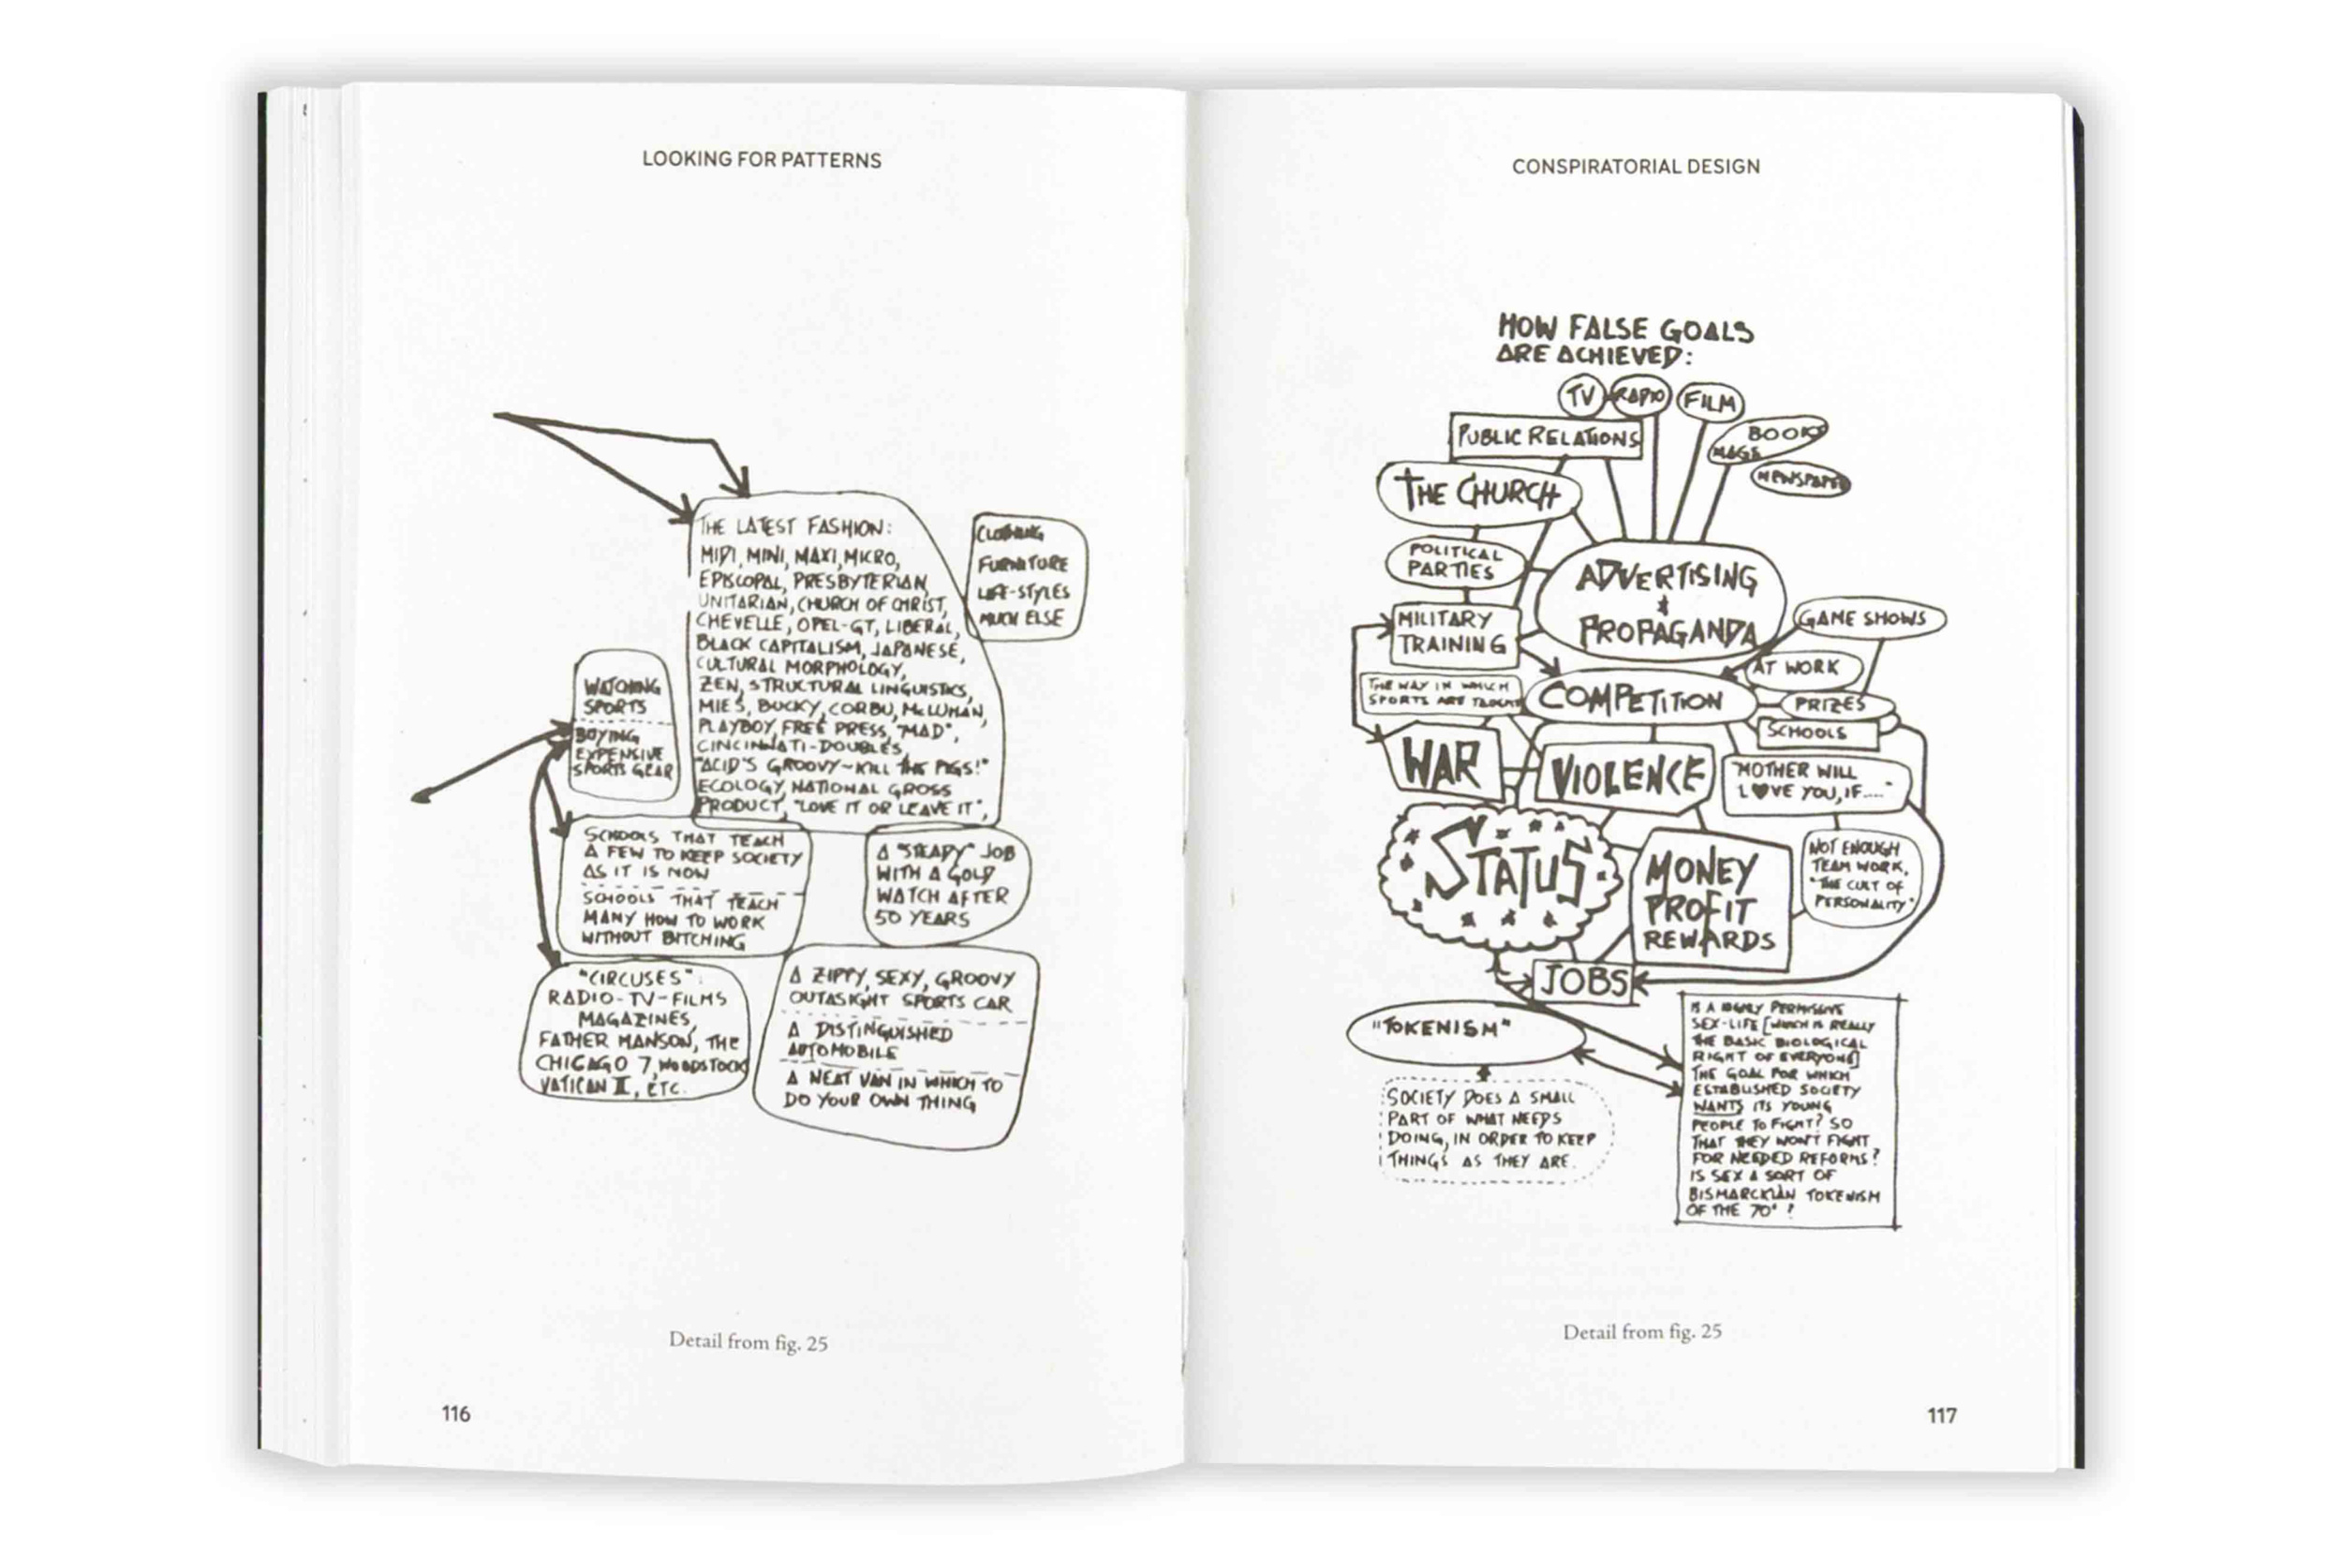 LOOKING FOR PATTERNS
THE LATEST FASHION:
MIDI, MINI, MAXI, MICRO,
EPISCOPAL, PRESBYTERIAN,
UNITARIAN, CHURCH OF CHRIST,
CHEVELLE, OPEL-GT, LIBERAL,
BLACK CAPITALISM, JAPANESE,
CULTURAL MORPHOLOGY,
ZEN, STRUCTURAL LINGUISTICS,
MIES, BUCKY, CORBU, McLUHAN,
PLAYBOY, FREE PRESS, "MAD",
CINCINNATI-DOUBLES,
"ACID'S GROOVY~KILL THE PIGS!"
ECOLOGY, NATIONAL GROSS
PRODUCT, "LOVE IT OR LEAVE IT",
CLOTHING
FURNITURE
LIFE-STYLES
MUCH ELSE
WATCHING
SPORTS
BUYING
EXPENSIVE
SPORTS GEAR
SCHOOLS THAT TEACH
A FEW TO KEEP SOCIETY
AS IT IS NOW
SCHOOLS THAT TEACH
MANY HOW TO WORK
WITHOUT BITCHING
A "STEADY" JOB
WITH A GOLD
WATCH AFTER
50 YEARS
"CIRCUSES":
RADIO-TV-FILMS
MAGAZINES,
FATHER MANSON, THE
CHICAGO 7, WOODSTOCK
VATICAN II, ETC.
A ZIPPY, SEXY, GROOVY
OUTASIGHT SPORTS CAR
A DISTINGUISHED
AUTOMOBILE
A NEAT VAN IN WHICH TO
DO YOUR OWN THING
Detail from fig. 25
116
CONSPIRATORIAL DESIGN
HOW FALSE GOALS
ARE ACHIEVED:
TV
RADIO
FILM
BOOKS
MAGS
NEWSPAPER
PUBLIC RELATIONS
THE CHURCH
POLITICAL
PARTIES
ADVERTISING
&
PROPAGANDA
MILITARY
TRAINING
GAME SHOWS
AT WORK
THE WAY IN WHICH
SPORTS ARE TAUGHT
COMPETITION
PRIZES
SCHOOLS
WAR
VIOLENCE
"MOTHER WILL
L♥VE YOU, IF....."
STATUS
MONEY
PROFIT
REWARDS
NOT ENOUGH
TEAM WORK,
"THE CULT OF
PERSONALITY"
JOBS
"TOKENISM"
SOCIETY DOES A SMALL
PART OF WHAT NEEDS
DOING, IN ORDER TO KEEP
THINGS AS THEY ARE.
IS A PERMISSIVE
SEX-LIFE [WHICH IS REALLY
THE BASIC BIOLOGICAL
RIGHT OF EVERYONE]
THE GOAL FOR WHICH
ESTABLISHED SOCIETY
WANTS ITS YOUNG
PEOPLE TO FIGHT? SO
THAT THEY WON'T FIGHT
FOR NEEDED REFORMS?
IS SEX A SORT OF
BISMARCKIAN TOKENISM
OF THE 70' ?
Detail from fig. 25
117